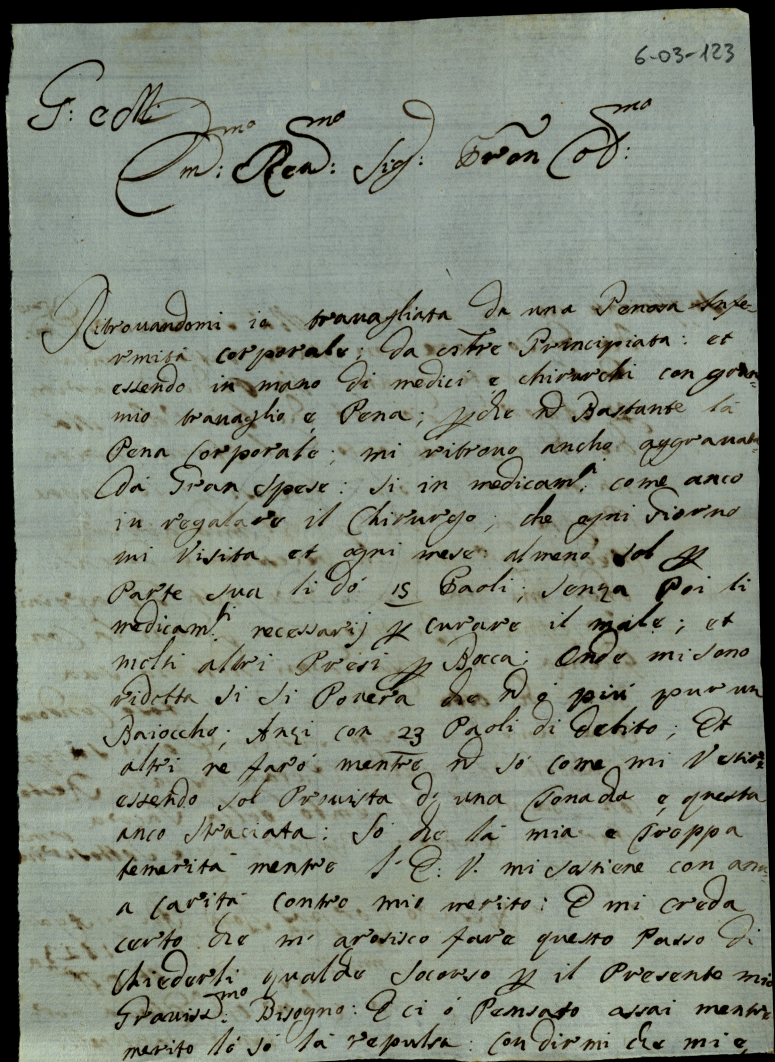 6-03-123
G: e M:
Em:mo Reu:mo Sig: Pron Col:mo
Ritrouandomi io trauagliata da una Penosa Infe-
rmità corporale; da estre Principiata: et
essendo in mano di medici e chirurchi con gran
mio trauaglio e Pena; p che nō Bastante la
Pena Corporale; mi ritrouo anche aggrauat
da Gran spese: si in medicam:ti come anco
in regalare il Chirurgo; che ogni Giorno
mi Visita et ogni mese almeno sol p
Parte sua li dò 15 Paoli; senza Poi li
medicam:ti necessarij p curare il male; et
molti altri Presi p Bocca; Onde mi sono
ridotta si si Pouera che nō ò più pur un
Baioccho; Anzi con 23 Paoli di debito; Et
altri ne farò mentre nō sò come mi Vestire
essendo sol Prouista di una Tonacha e questa
anco Straciata: Sò che la mia e Troppa
temerità mentre S. E: V. mi sostiene con
a carità contro mio merito: E mi creda
certo che m' arosisco fare questo Passo di
chiederli qualche Socorso p il Presente mio
Grauiss:mo Bisogno: E ci ò Pensato assai mentre
merito lo so la repulsa: con dirmi che mi e,